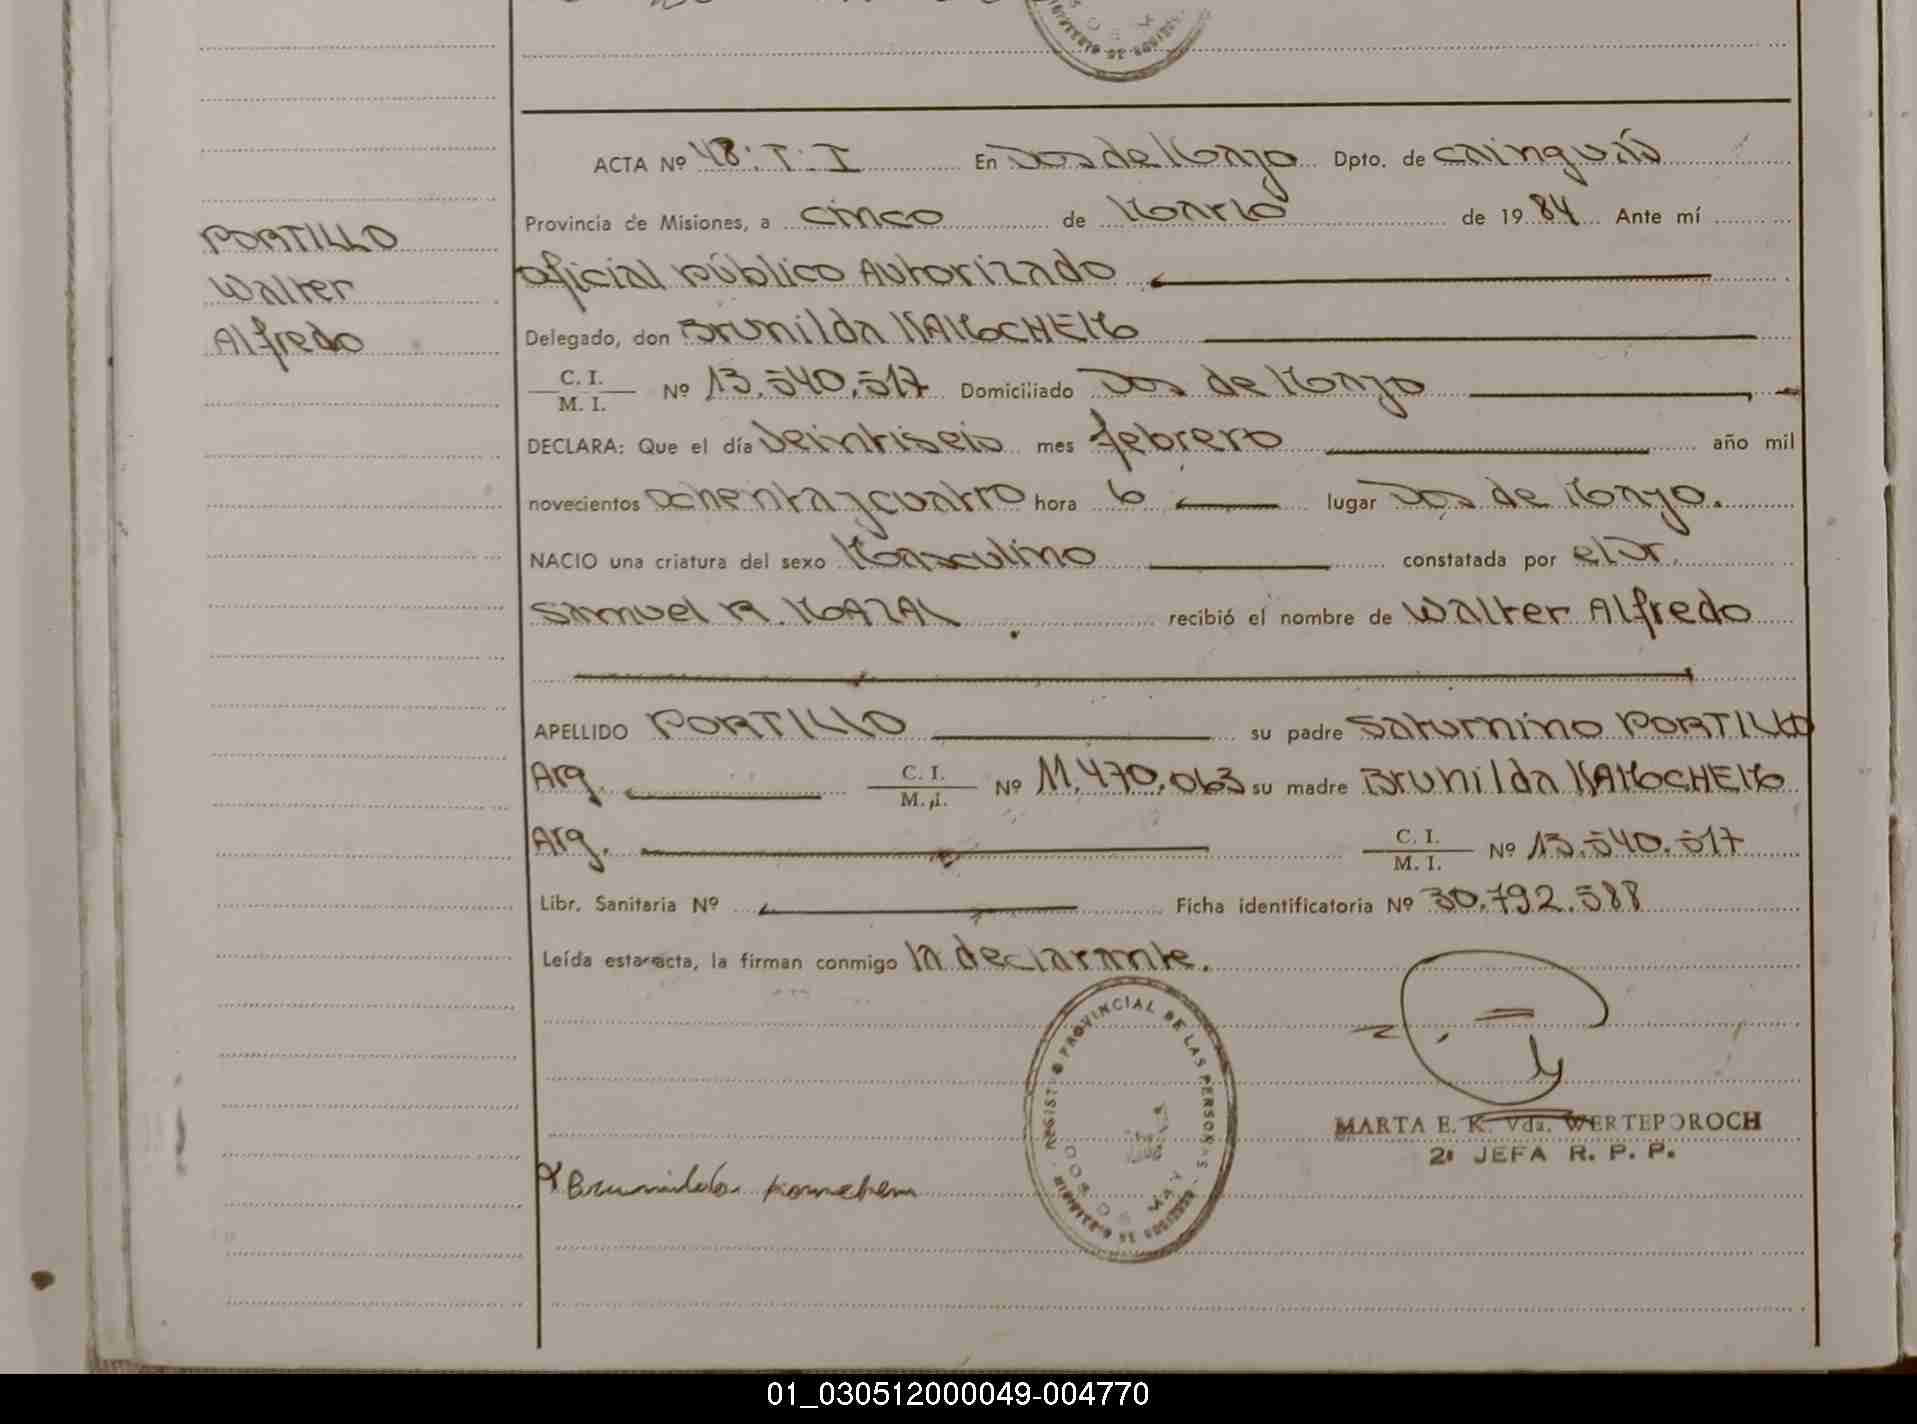 PORTILLO
Walter
Alfredo
ACTA Nº 48:T:I En Dos de Mayo Dpto. de Cainguás
Provincia de Misiones, a cinco de Marzo de 1984 Ante mí
oficial público Autorizado
Delegado, don Brunilda KAMCHEM
C. I.
M. I. Nº 13.540.517 Domiciliado Dos de Mayo
DECLARA: Que el día veintiseis mes febrero año mil
novecientos ochenta y cuatro hora 6 lugar Dos de Mayo.
NACIO una criatura del sexo Masculino constatada por el Dr.
Samuel R. MAZAL recibió el nombre de Walter Alfredo
APELLIDO PORTILLO su padre Saturnino PORTILLO
Arg. C. I.
M. I. Nº 11.470.063 su madre Brunilda KAMCHEM
Arg. C. I.
M. I. Nº 13.540.517
Libr. Sanitaria Nº Ficha identificatoria Nº 30.792.588
Leída esta acta, la firman conmigo la declarante.
REGISTRO PROVINCIAL DE LAS PERSONAS
DOS DE MAYO
MARTA E. K. Vda. WERTEPOROCH
2ª JEFA R. P. P.
Brunilda
01_030512000049-004770